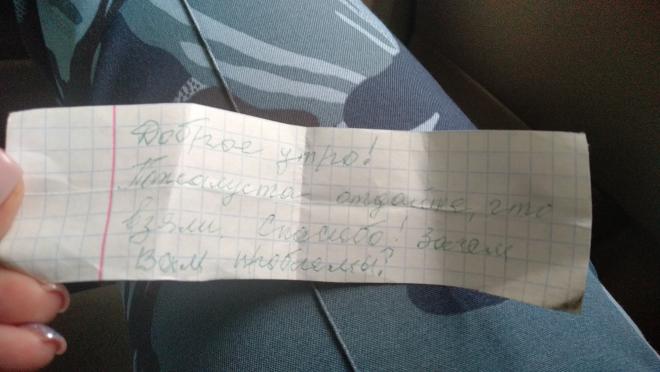 Доброе утро!
Пожалуста отдайте, что
взяли. Спасибо! Зачем
Вам проблемы?